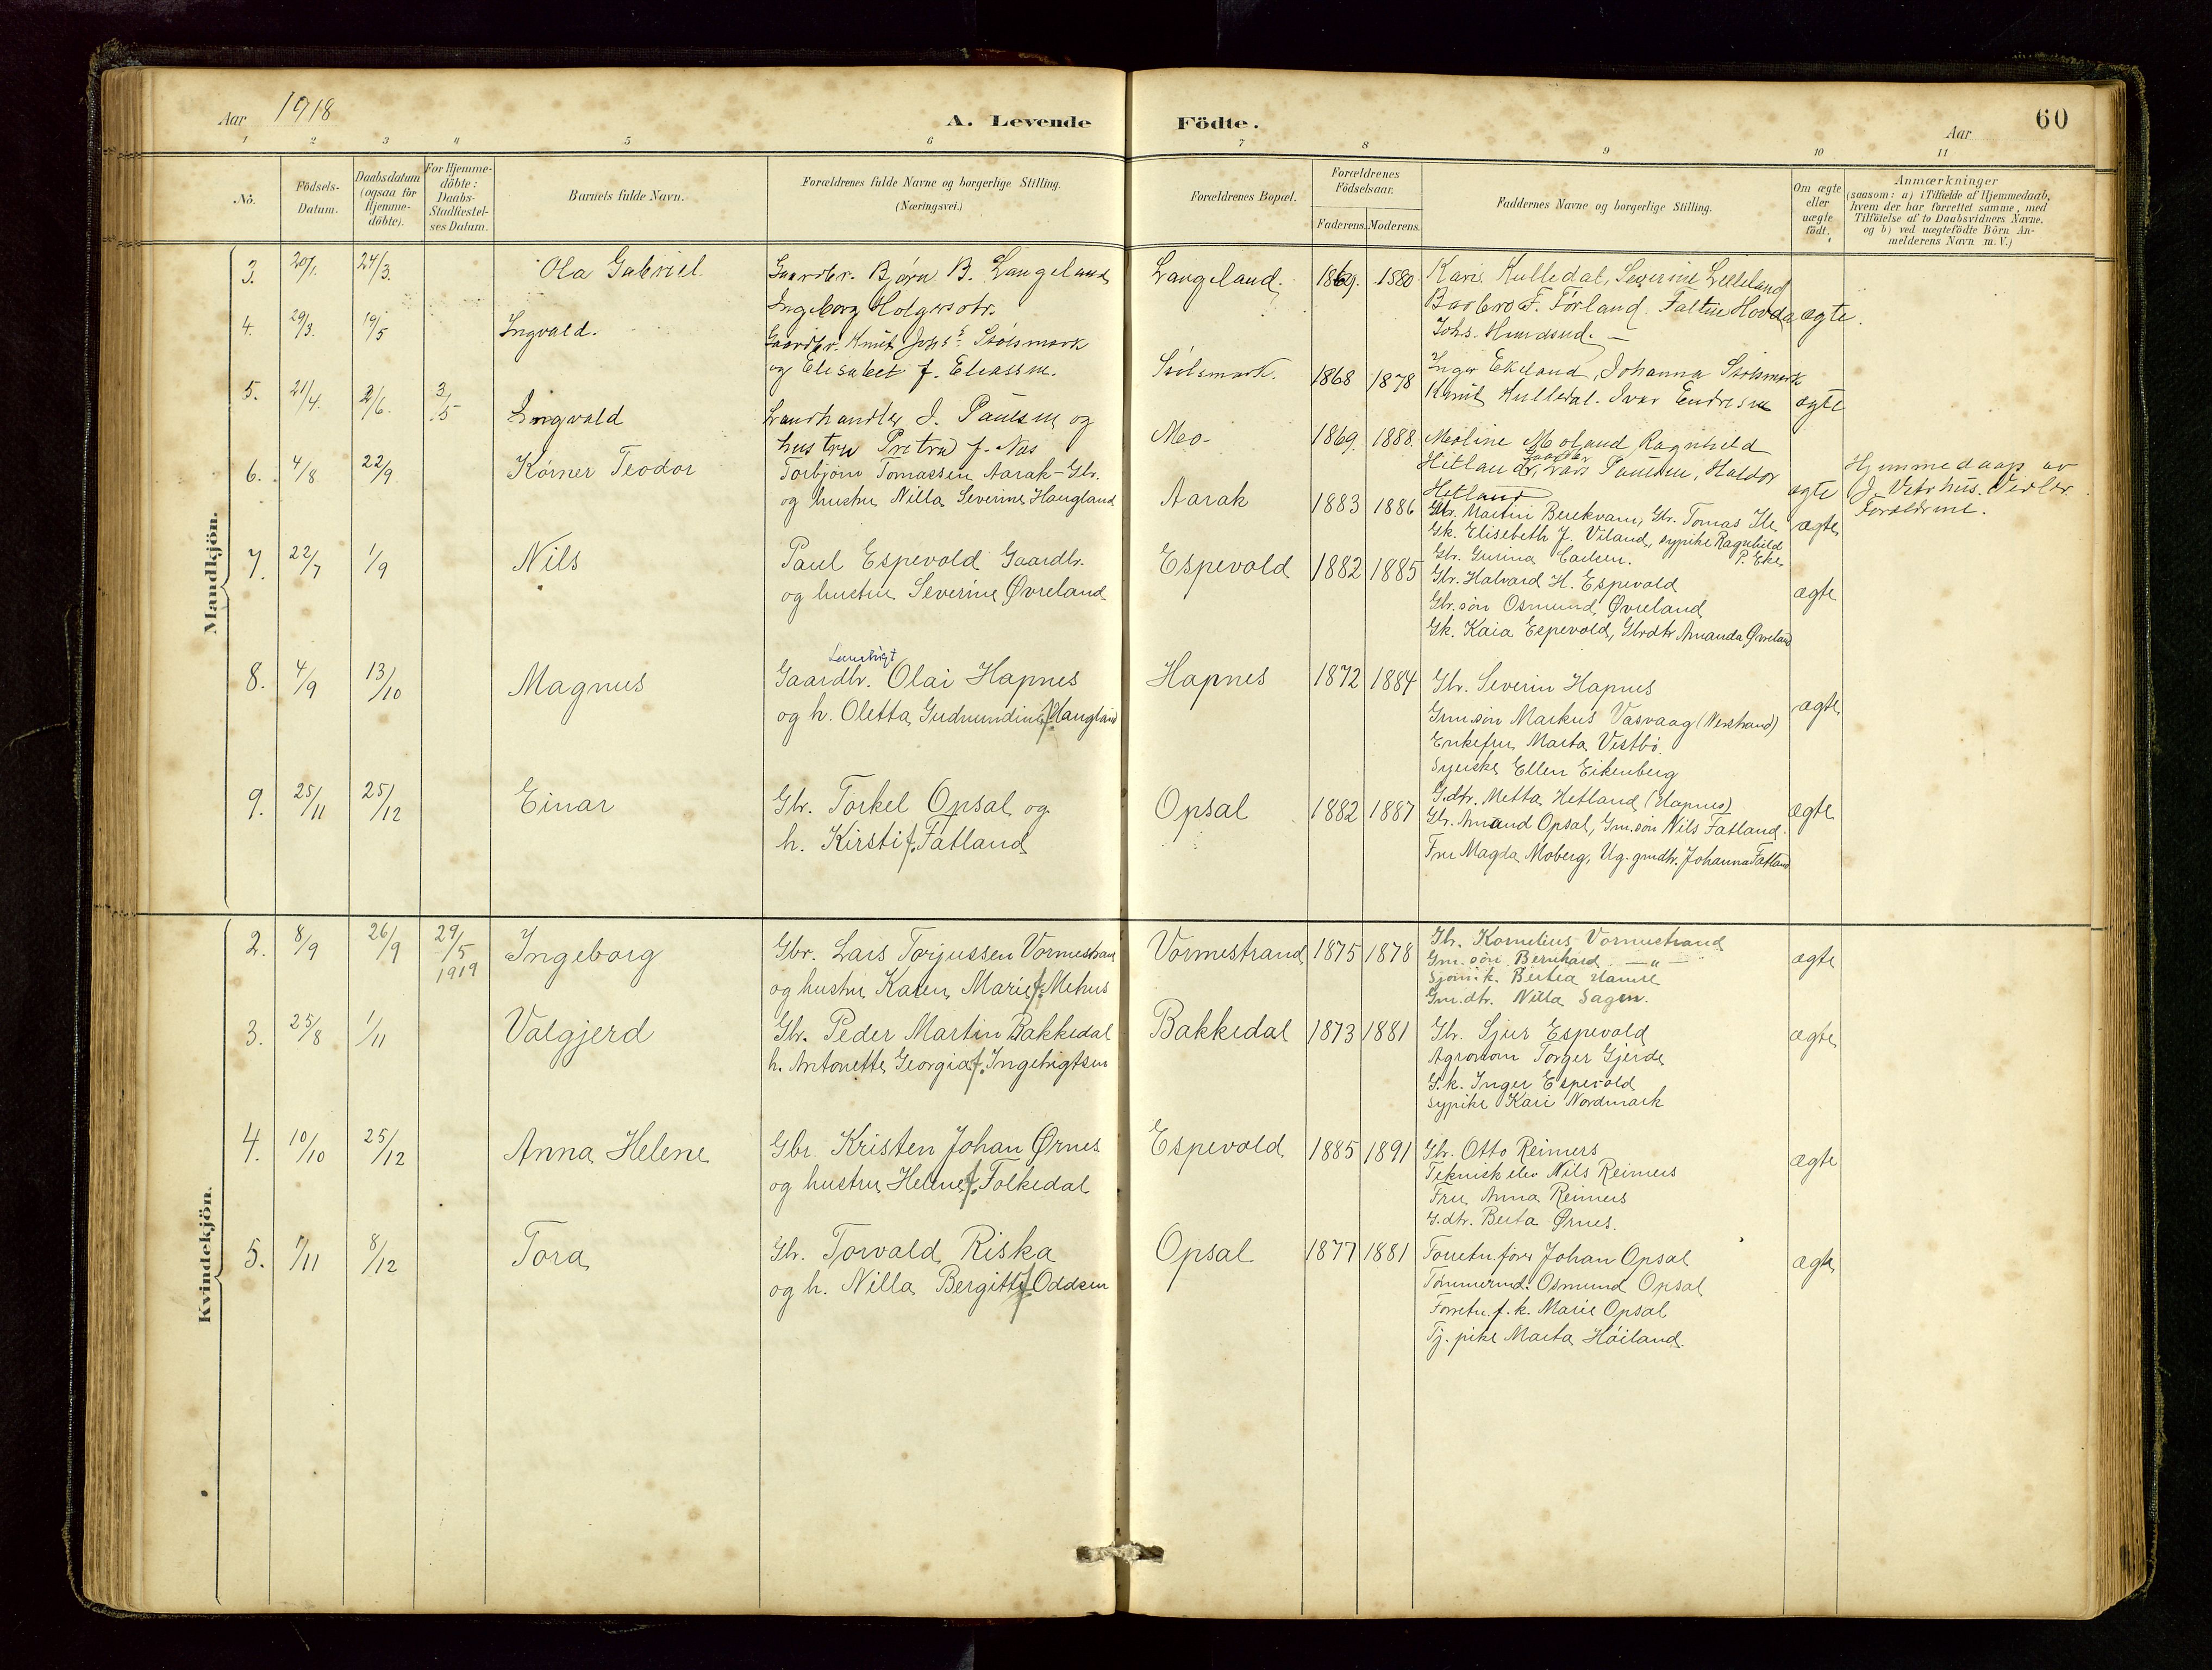 Aar 1918
A. Levende Födte.
Aar
60
1 2 3 4 5 6 7 8 9 10 11
Nò.
Födsels-Datum.
Daabsdatum (ogsaa for Hjemme-döbte).
For Hjemme-döbte: Daabs-Stadfæstel-ses Datum.
Barnets fulde Navn.
Forældrenes fulde Navne og borgerlige Stilling.
(Næringsvei.)
Forældrenes Bopæl.
Forældrenes Födselsaar.
Faderens. Moderens.
Faddernes Navne og borgerlige Stilling.
Om ægte eller uægte födt.
Anmærkninger
(saasom: a) i Tilfælde af Hjemmedaab,
hvem der har forrettet samme, med
Tilföielse af to Daabsvidners Navne,
og b) ved uægtefödte Börn An-
melderens Navn m. V.)
Mandkjön.
3. 20/1. 24/3. Ola Gabriel. Gaardbr. Bjørn B. Langeland Langeland. 1869. 1880 Kari Kulledal, Severine Lilleland
Ingeborg Holgersdtr. Barbro F. Førland. Faltin Hovda ægte.
Johs. Hundsnd. —
4. 29/3. 19/5 Ingvald. Gaardbr. Knut Johs. Stölsmark
og Elisabet f. Eliassen. Stölsmark. 1868 1878 Inger Ekeland, Johanna Stölsmark
Knut Kulledal. Ivar Endresen ægte
5. 21/4. 2/6. 3/5 Ingvald Landhandler J. Paulsen og Mo- 1869. 1888. Meline Moland Ragnhild
hustru Petra f. Nes Hetland, Gaardbr. Lars Paulsen, Haldor
Hetland ægte Hjemmedaap av
J. Vetrhus. Vidner.
Forældrene.
6. 4/8 22/9 Körner Teodor Torbjörn Tomassen Aarak-Gbr. Aarak 1883 1886 Gbr. Martin Berekvam, Gbr. Tomas Ile ægte
og hustru Nilla Severine Haugland Gk. Elisebeth J. Viland, sypike Ragnhild
Gbr. Gurina Carlsen. P. Eike
7. 22/7 1/9 Nils Paul Espevold Gaardbr. Espevold 1882 1885 Gbr. Halvard H. Espevold
og hustru Severine Øvreland Gbr.søn Osmund Øvreland ægte
Gk. Kaia Espevold, Gbrdtr Amanda Øvreland
8. 4/9 13/10 Magnus Gaardbr. Olai Hapnes Hapnes 1872 1884 Gbr. Severin Hapnes
og h. Oletta Gudmundine f. Haugland Gm.søn Markus Vasvaag (Nerstrand) ægte
Enkefru Marta Vestbö.
Syerske Ellen Eikenberg
G.dtr. Metta Hetland (Hapnes)
9. 25/11 25/12 Einar Gbr. Torkel Opsal og Opsal 1882 1887 Gbr. Amund Opsal, Gm.søn Nils Fatland. ægte
h. Kirsti f. Fatland Fru Magda Moberg, Ug. gmdtr. Johanna Fatland
Kvindekjön.
2. 8/9 26/9 29/5 1919 Ingeborg Gbr. Lars Torjussen Vormestrand Vormestrand 1875 1878 Gbr. Kornelius Vormestrand
og hustru Karen Marie f. Mehus Gm. søn Bernhard —"— ægte
Sjöm.k. Bertea Hamre
Gm.dtr. Nilla Sagen.
3. 25/8 1/11 Valgjerd Gbr. Peder Martin Bakkedal Bakkedal 1873 1881 Gbr. Sjur Espevold ægte
h. Antonette Georgia f. Ingebrigtsen Agronom Torger Gjerde
G.k. Inger Espevold
sypike Kari Nordmark
4. 10/10 25/12 Anna Helene Gbr. Kristen Johan Ørnes Espevold 1885 1891 Gbr. Otto Reimers ægte
og hustru Helene f. Folkedal Teknisk elev Nils Reimers
Fru Anna Reimers
G.dtr. Berta Ørnes.
5. 1/11 8/12 Tora Gbr. Torvald Riska Opsal 1877 1881 Forretn.förer Johan Opsal ægte
og h. Nilla Bergitte f. Oddsen Tömmermd. Osmund Opsal
Forretn. f. k. Marie Opsal
Tj. pike Marta Höiland.